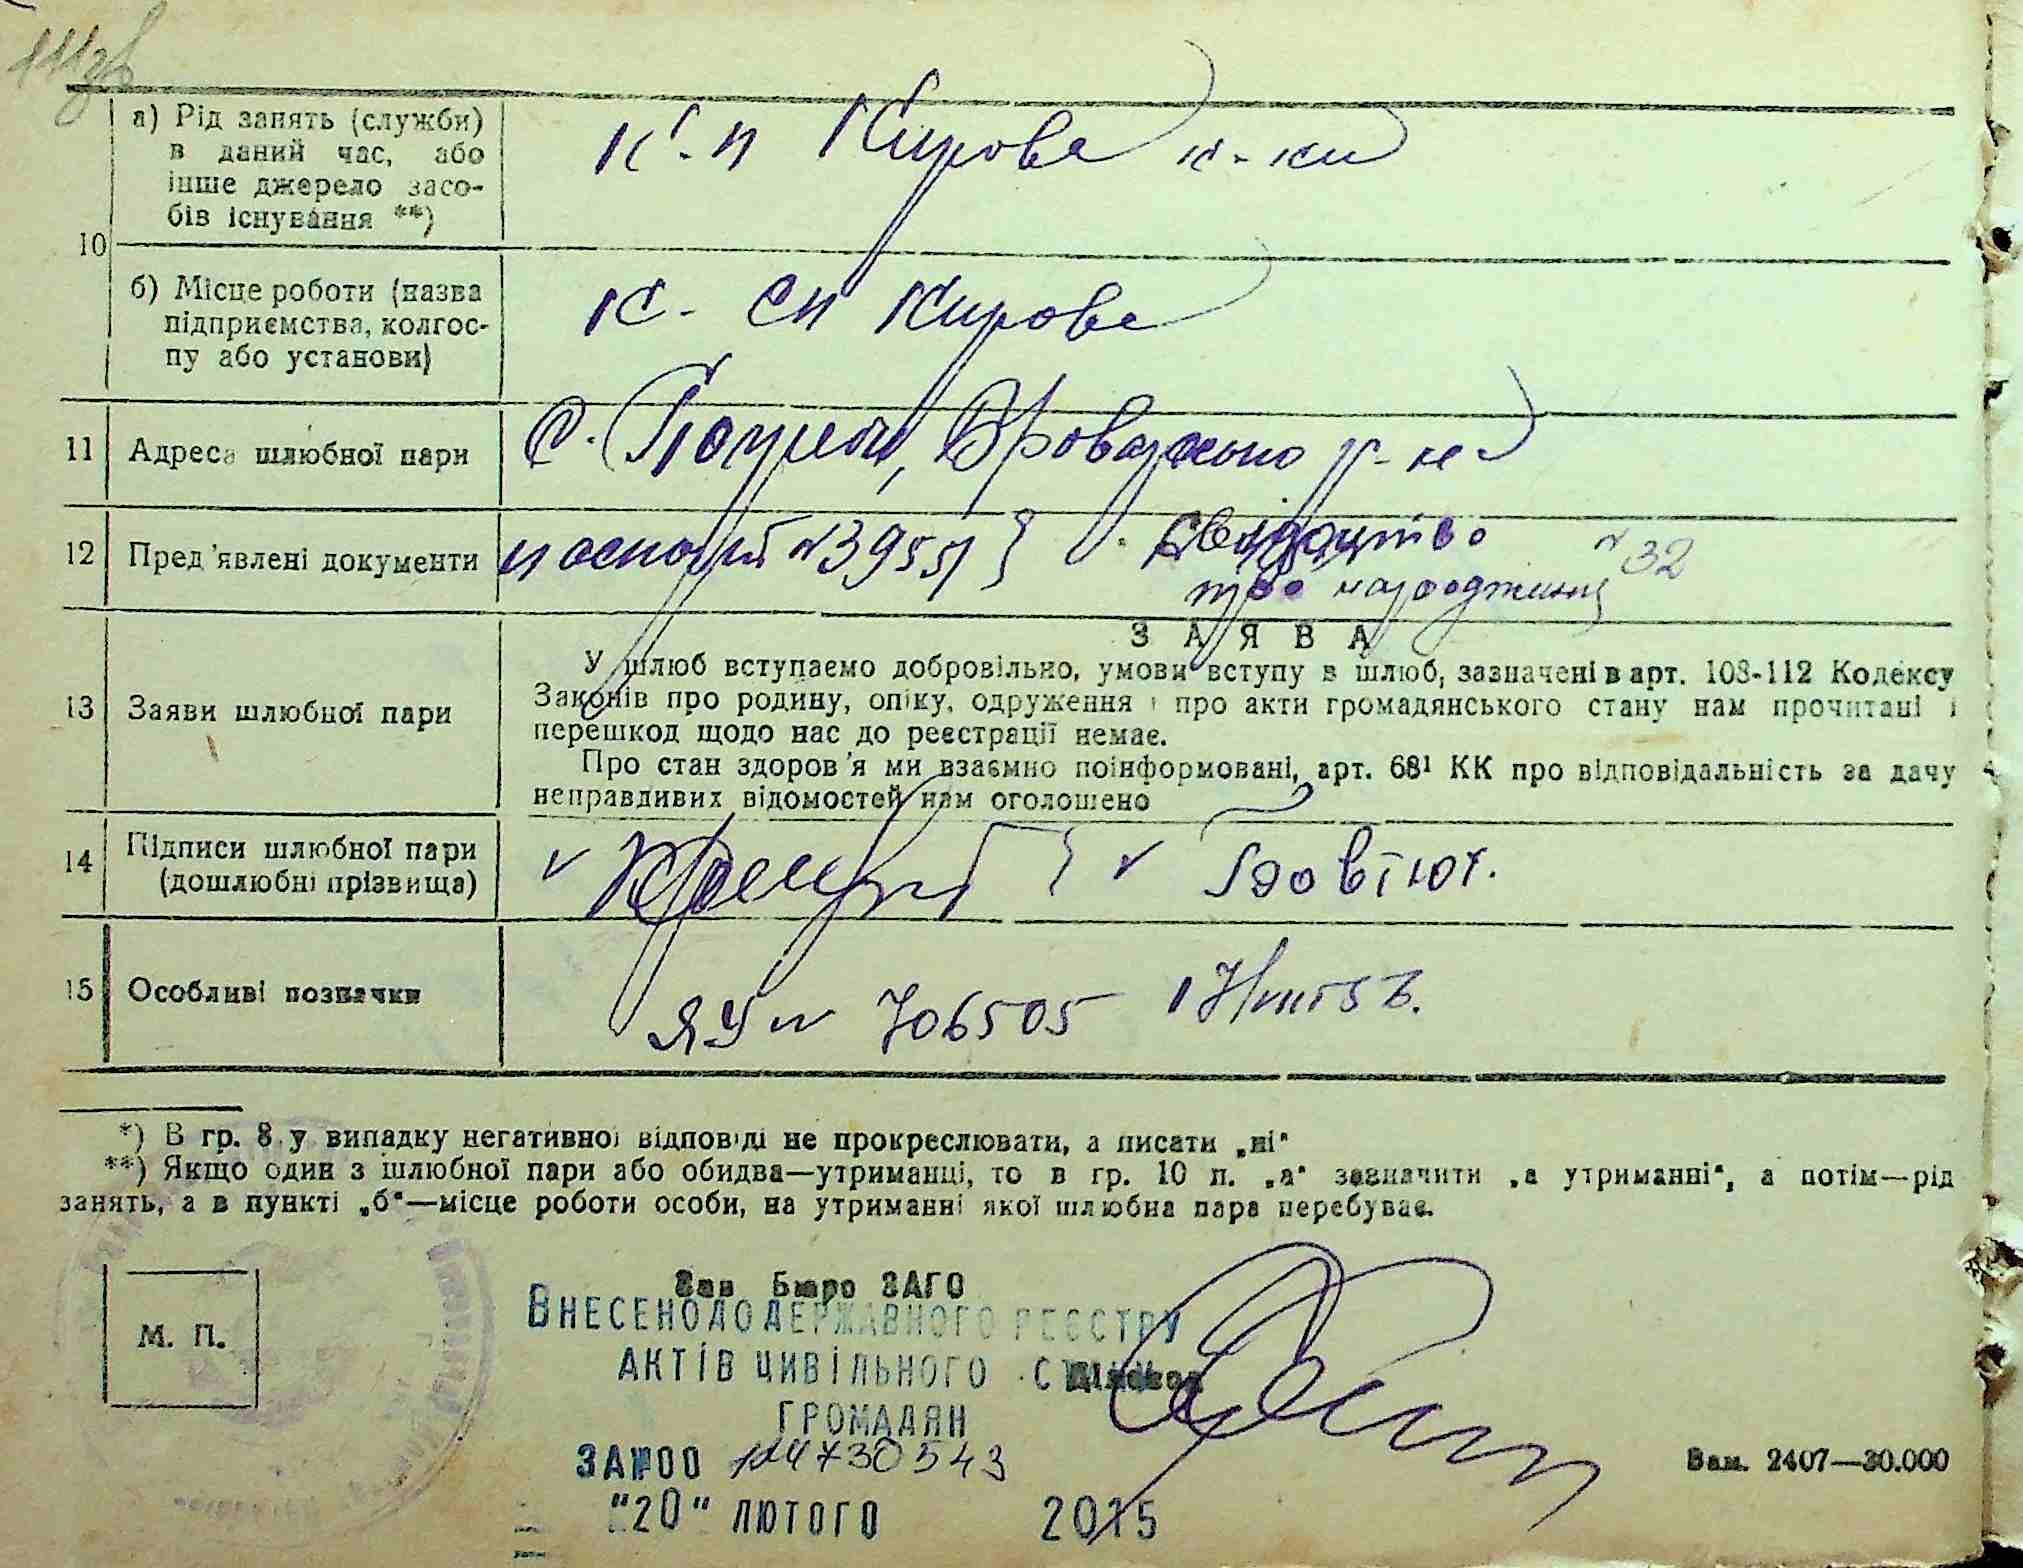 10
а) Рід занять (служби)
в даний час, або
інше джерело засо-
бів існування **)
к-п Кирова к-ки
б) Місце роботи (назва
підприємства, колгос-
пу або установи)
к- сп Кирова
11 Адреса шлюбної пари
с. Броварсько р-на
12 Пред'явлені документи
паспорт №39551 } Свідоцтво № 32
про народження
13 Заяви шлюбної пари
ЗАЯВА
У шлюб вступаємо добровільно, умови вступу в шлюб, зазначені в арт. 108-112 Кодексу
Законів про родину, опіку, одруження і про акти громадянського стану нам прочитані і
перешкод щодо нас до реєстрації немає.
Про стан здоров'я ми взаємно поінформовані, арт. 68¹ КК про відповідальність за дачу
неправдивих відомостей нам оголошено
14 Підписи шлюбної пари
(дошлюбні прізвища)
15 Особливі позначки
ЯУ № 706505
*) В гр. 8 у випадку негативної відповіді не прокреслювати, а писати „ні“
**) Якщо один з шлюбної пари або обидва—утриманці, то в гр. 10 п. „а“ зазначити „а утриманні“, а потім—рід
занять, а в пункті „б“—місце роботи особи, на утриманні якої шлюбна пара перебуває.
М. П.
Зав Бюро ЗАГО
Внесено до державного реєстру
актів цивільного стану
Діловод
громадян
ЗА №00 124730543
"20" лютого 2015
Зам. 2407—30.000